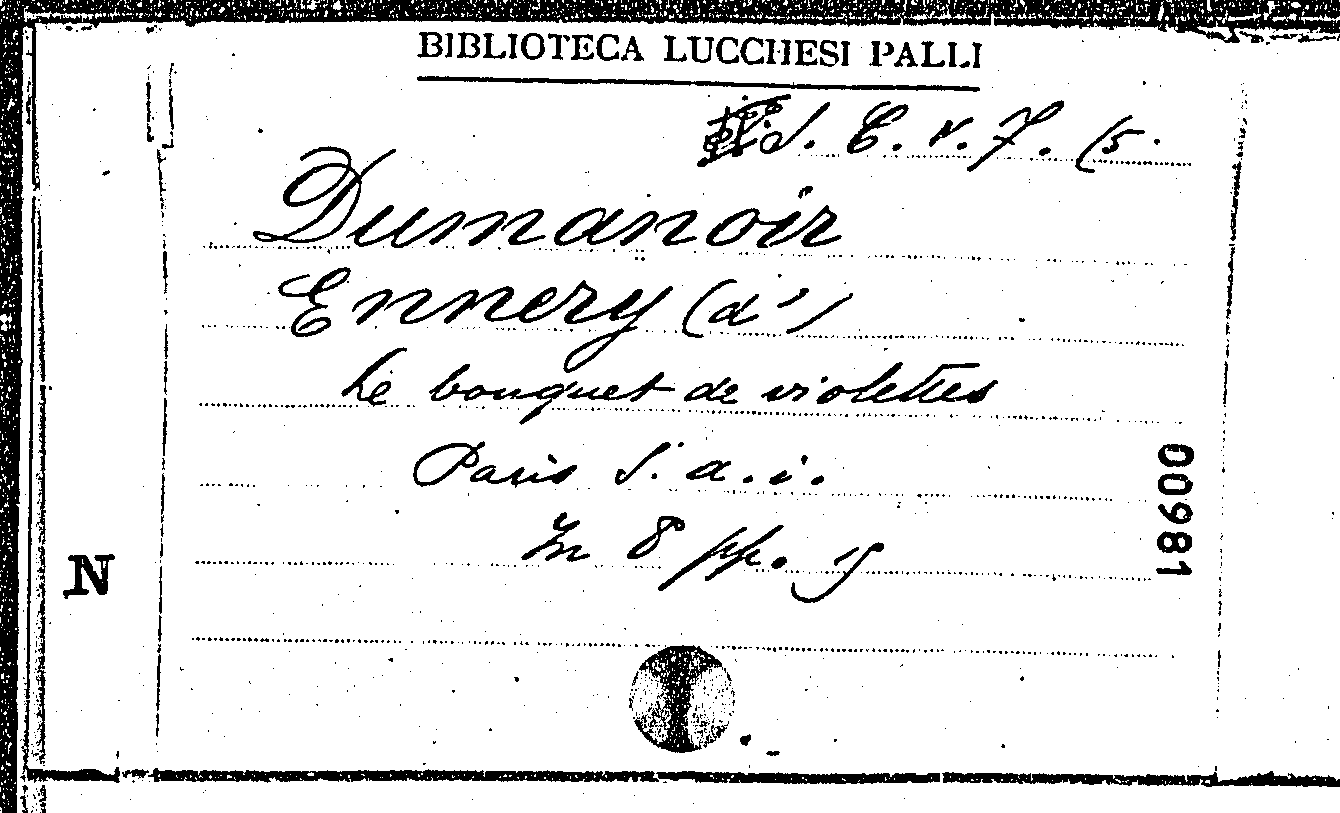 BIBLIOTECA LUCCHESI PALLI
S. C. v. 7. (5.
Dumanoir
Ennery (d')
Le bouquet de violettes
Paris S. a. i.
In 8 pp. 15
00981
N